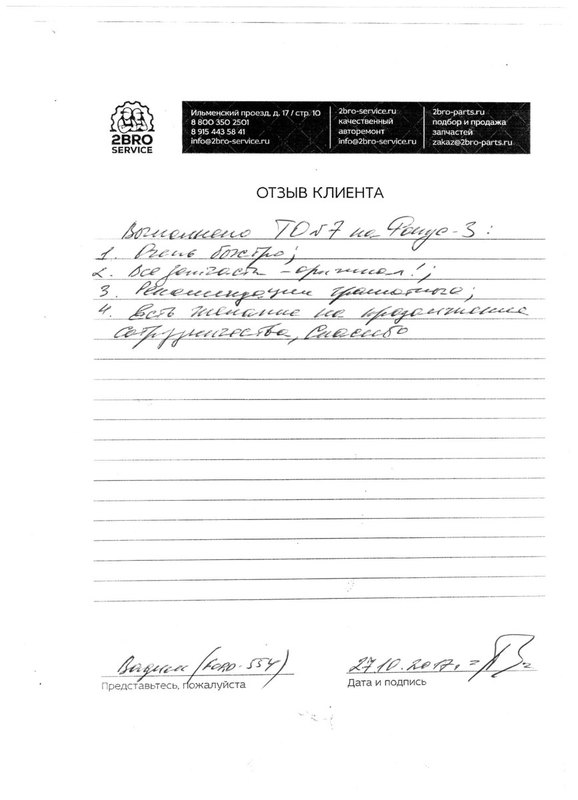 2BRO
SERVICE
Ильменский проезд, д. 17 / стр. 10
8 800 350 2501
8 915 443 58 41
info@2bro-service.ru
2bro-service.ru
качественный
авторемонт
info@2bro-service.ru
2bro-parts.ru
подбор и продажа
запчастей
zakaz@2bro-parts.ru
ОТЗЫВ КЛИЕНТА
Выполнено ТО №7 на Фокус-3:
1. Очень быстро;
2. Все запчасти - оригинал!;
3. Рекомендации грамотного;
4. Есть желание на продолжение
сотрудничества, Спасибо
Вадим
Представьтесь, пожалуйста
27.10.2017г.
Дата и подпись